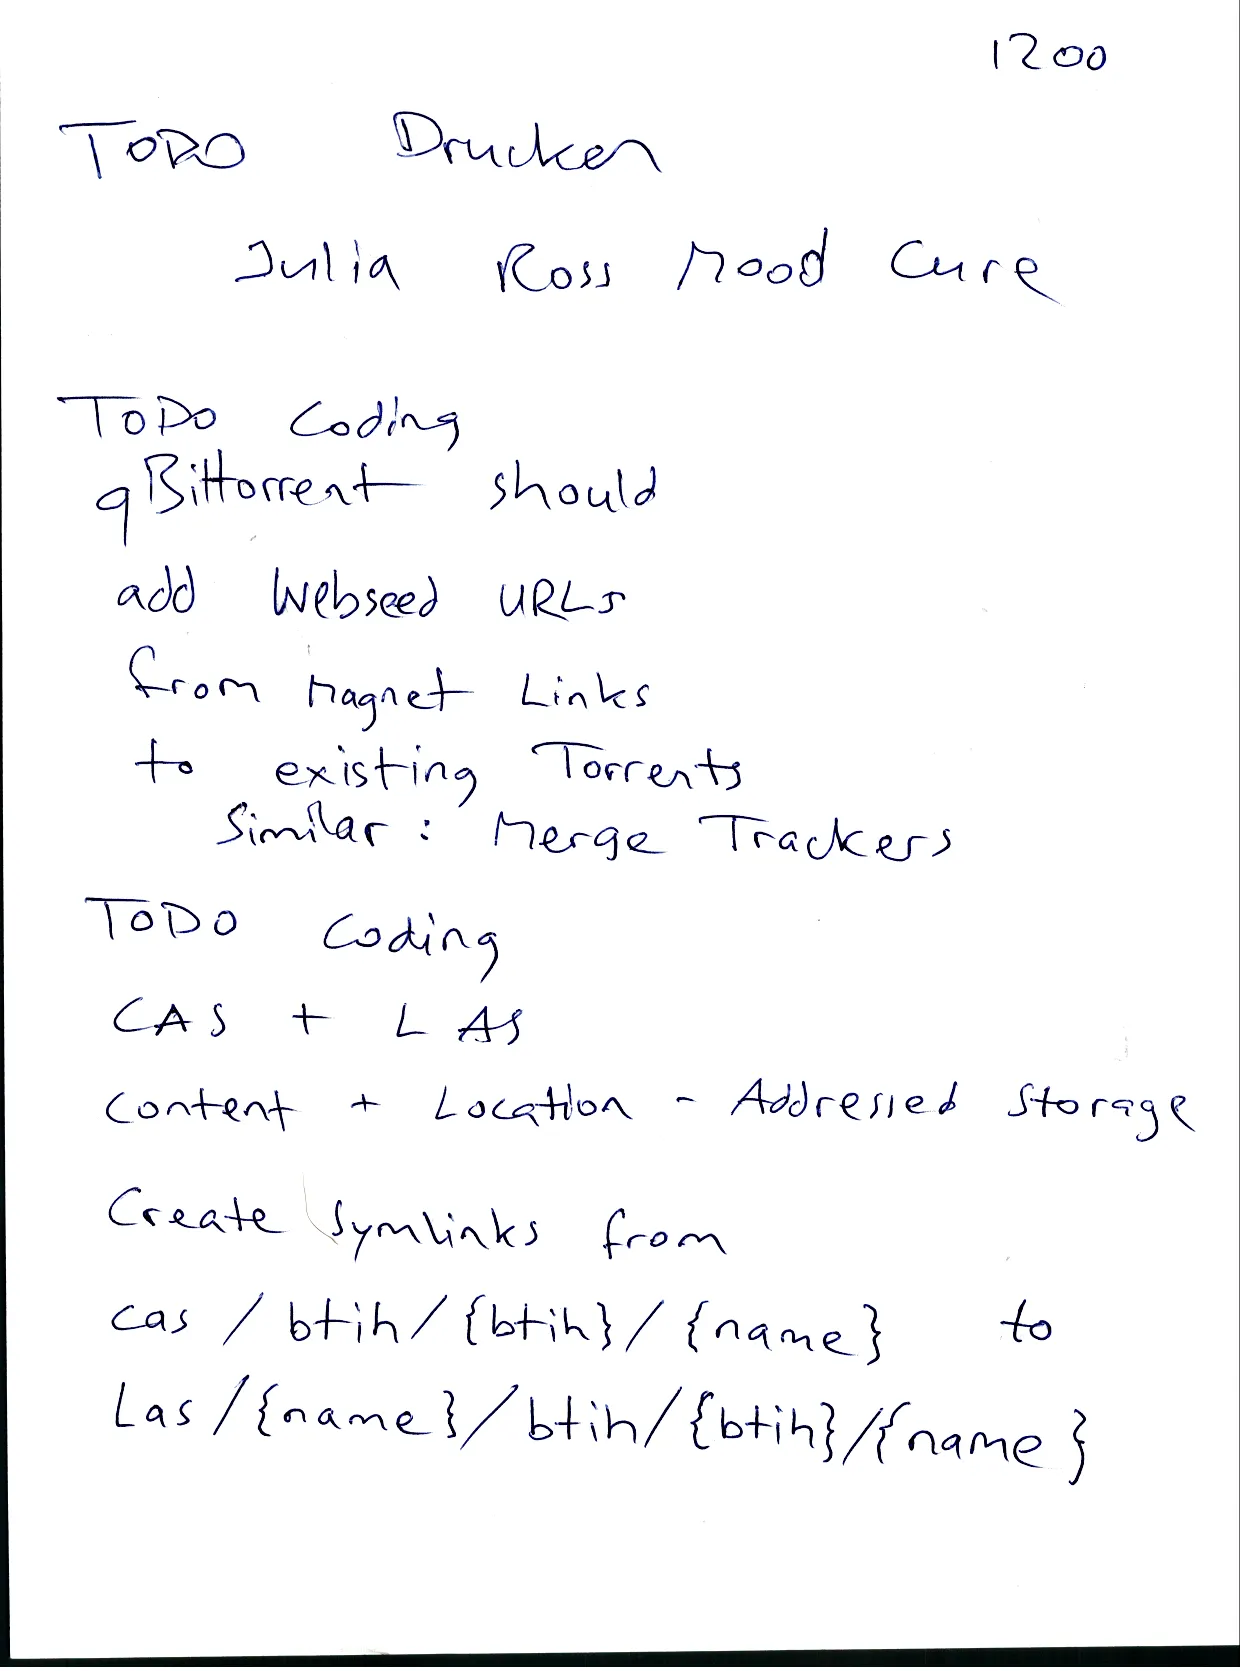 1200
TODO Drucken
Julia Ross Mood Cure
TODO Coding
qBittorrent should
add Webseed URLs
from Magnet Links
to existing Torrents
Similar: Merge Trackers
TODO Coding
CAS + LAS
Content + Location - Addressed Storage
Create Symlinks from
cas / btih / {btih} / {name} to
Las / {name} / btih / {btih} / {name}